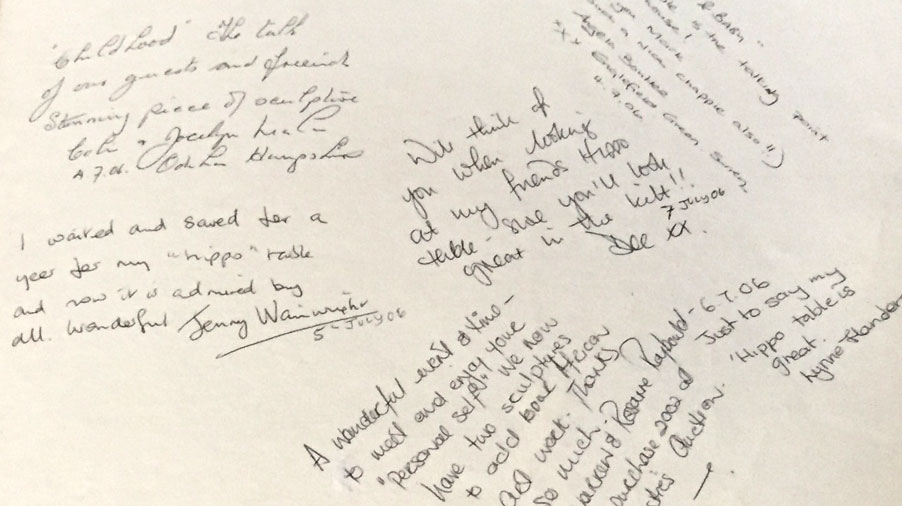 "Childhood" The talk
of our guests and friends
Stunning piece of sculpture
Colin & Jocelyn
4.7.06. Odiham Hampshire
I waited and saved for a
year for my "Hippo" table
and now it is admired by
all. Wonderful Jenny Wainwright
5th July 06
& BABY"
is the talking point
house!
you Mark
such a nice chappie also")
Angela
xx Green Surrey
4.7.06
Will think of
you when looking
at my friends Hippo
table - sure you'll look
great in the kilt!!
7 July 06
Dee xx.
A wonderful event & time -
to meet and enjoy your
"personal self"! We now
have two sculptures
to add to our African
art work. Thanks
so much.
& Rosanne Raybould - 6.7.06
purchase 2002 at
Auction.
Just to say my
"Hippo table is
great.
Lynne